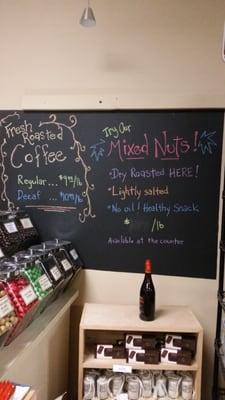 Fresh Roasted
Coffee
Regular...
Decaf...
Try Our
Mixed Nuts!
• Dry Roasted HERE!
• Lightly salted
• No oil! Healthy Snack
$ /lb
Available at the counter